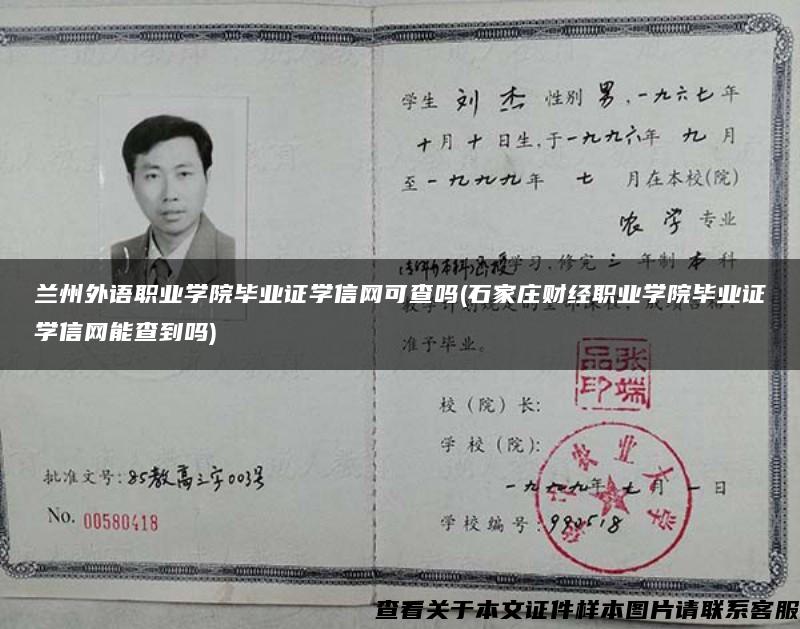 学生 刘杰 性别 男,一九六七年
十月十日生,于一九九六年 九月
至一九九九年 七 月在本校(院)
农学 专业
学习,修完 三 年制 本 科
兰州外语职业学院毕业证学信网可查吗(石家庄财经职业学院毕业证
学信网能查到吗)
准予毕业。
张端
品印
校（院）长:
学 校（院）:
农业大学
一九九九年七月一日
学校编号:980518
批准文号:85教高三字003号
No. 00580418
查看关于本文证件样本图片请联系客服